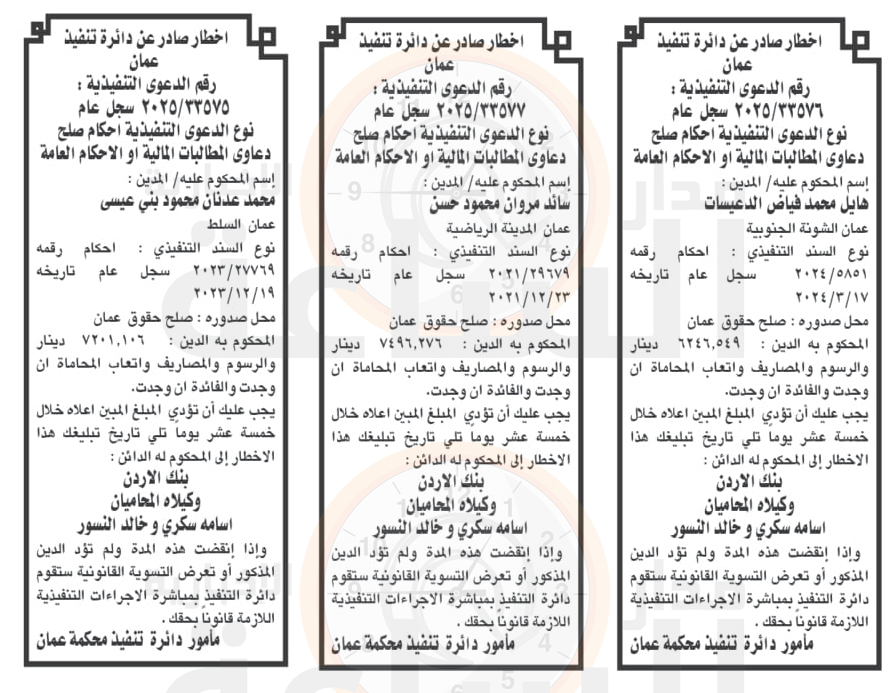 اخطار صادر عن دائرة تنفيذ
عمان
رقم الدعوى التنفيذية :
٢٠٢٥/٣٣٥٧٦ سجل عام
نوع الدعوى التنفيذية احكام صلح
دعاوى المطالبات المالية او الاحكام العامة
إسم المحكوم عليه/ المدين :
هايل محمد فياض الدعيسات
عمان الشونة الجنوبية
نوع السند التنفيذي : احكام رقمه
٢٠٢٤/٥٨٥١ سجل عام تاريخه
٢٠٢٤/٣/١٧
محل صدوره : صلح حقوق عمان
المحكوم به الدين : ٦٢٤٦,٥٤٩ دينار
والرسوم والمصاريف واتعاب المحاماة ان
وجدت والفائدة ان وجدت.
يجب عليك أن تؤدي المبلغ المبين اعلاه خلال
خمسة عشر يوما تلي تاريخ تبليغك هذا
الاخطار إلى المحكوم له الدائن :
بنك الاردن
وكيلاه المحاميان
اسامه سكري و خالد النسور
وإذا إنقضت هذه المدة ولم تؤد الدين
المذكور أو تعرض التسوية القانونية ستقوم
دائرة التنفيذ بمباشرة الاجراءات التنفيذية
اللازمة قانوناً بحقك .
مأمور دائرة تنفيذ محكمة عمان
اخطار صادر عن دائرة تنفيذ
عمان
رقم الدعوى التنفيذية :
٢٠٢٥/٣٣٥٧٧ سجل عام
نوع الدعوى التنفيذية احكام صلح
دعاوى المطالبات المالية او الاحكام العامة
إسم المحكوم عليه/ المدين :
سائد مروان محمود حسن
عمان المدينة الرياضية
نوع السند التنفيذي : احكام رقمه
٢٠٢١/٢٩٦٧٩ سجل عام تاريخه
٢٠٢١/١٢/٢٣
محل صدوره : صلح حقوق عمان
المحكوم به الدين : ٧٤٩٦,٢٧٦ دينار
والرسوم والمصاريف واتعاب المحاماة ان
وجدت والفائدة ان وجدت.
يجب عليك أن تؤدي المبلغ المبين اعلاه خلال
خمسة عشر يوما تلي تاريخ تبليغك هذا
الاخطار إلى المحكوم له الدائن :
بنك الاردن
وكيلاه المحاميان
اسامه سكري و خالد النسور
وإذا إنقضت هذه المدة ولم تؤد الدين
المذكور أو تعرض التسوية القانونية ستقوم
دائرة التنفيذ بمباشرة الاجراءات التنفيذية
اللازمة قانوناً بحقك .
مأمور دائرة تنفيذ محكمة عمان
اخطار صادر عن دائرة تنفيذ
عمان
رقم الدعوى التنفيذية :
٢٠٢٥/٣٣٥٧٥ سجل عام
نوع الدعوى التنفيذية احكام صلح
دعاوى المطالبات المالية او الاحكام العامة
إسم المحكوم عليه/ المدين :
محمد عدنان محمود بني عيسى
عمان السلط
نوع السند التنفيذي : احكام رقمه
٢٠٢٣/٢٧٧٦٩ سجل عام تاريخه
٢٠٢٣/١٢/١٩
محل صدوره : صلح حقوق عمان
المحكوم به الدين : ٧٢٠١,١٠٦ دينار
والرسوم والمصاريف واتعاب المحاماة ان
وجدت والفائدة ان وجدت.
يجب عليك أن تؤدي المبلغ المبين اعلاه خلال
خمسة عشر يوما تلي تاريخ تبليغك هذا
الاخطار إلى المحكوم له الدائن :
بنك الاردن
وكيلاه المحاميان
اسامه سكري و خالد النسور
وإذا إنقضت هذه المدة ولم تؤد الدين
المذكور أو تعرض التسوية القانونية ستقوم
دائرة التنفيذ بمباشرة الاجراءات التنفيذية
اللازمة قانوناً بحقك .
مأمور دائرة تنفيذ محكمة عمان